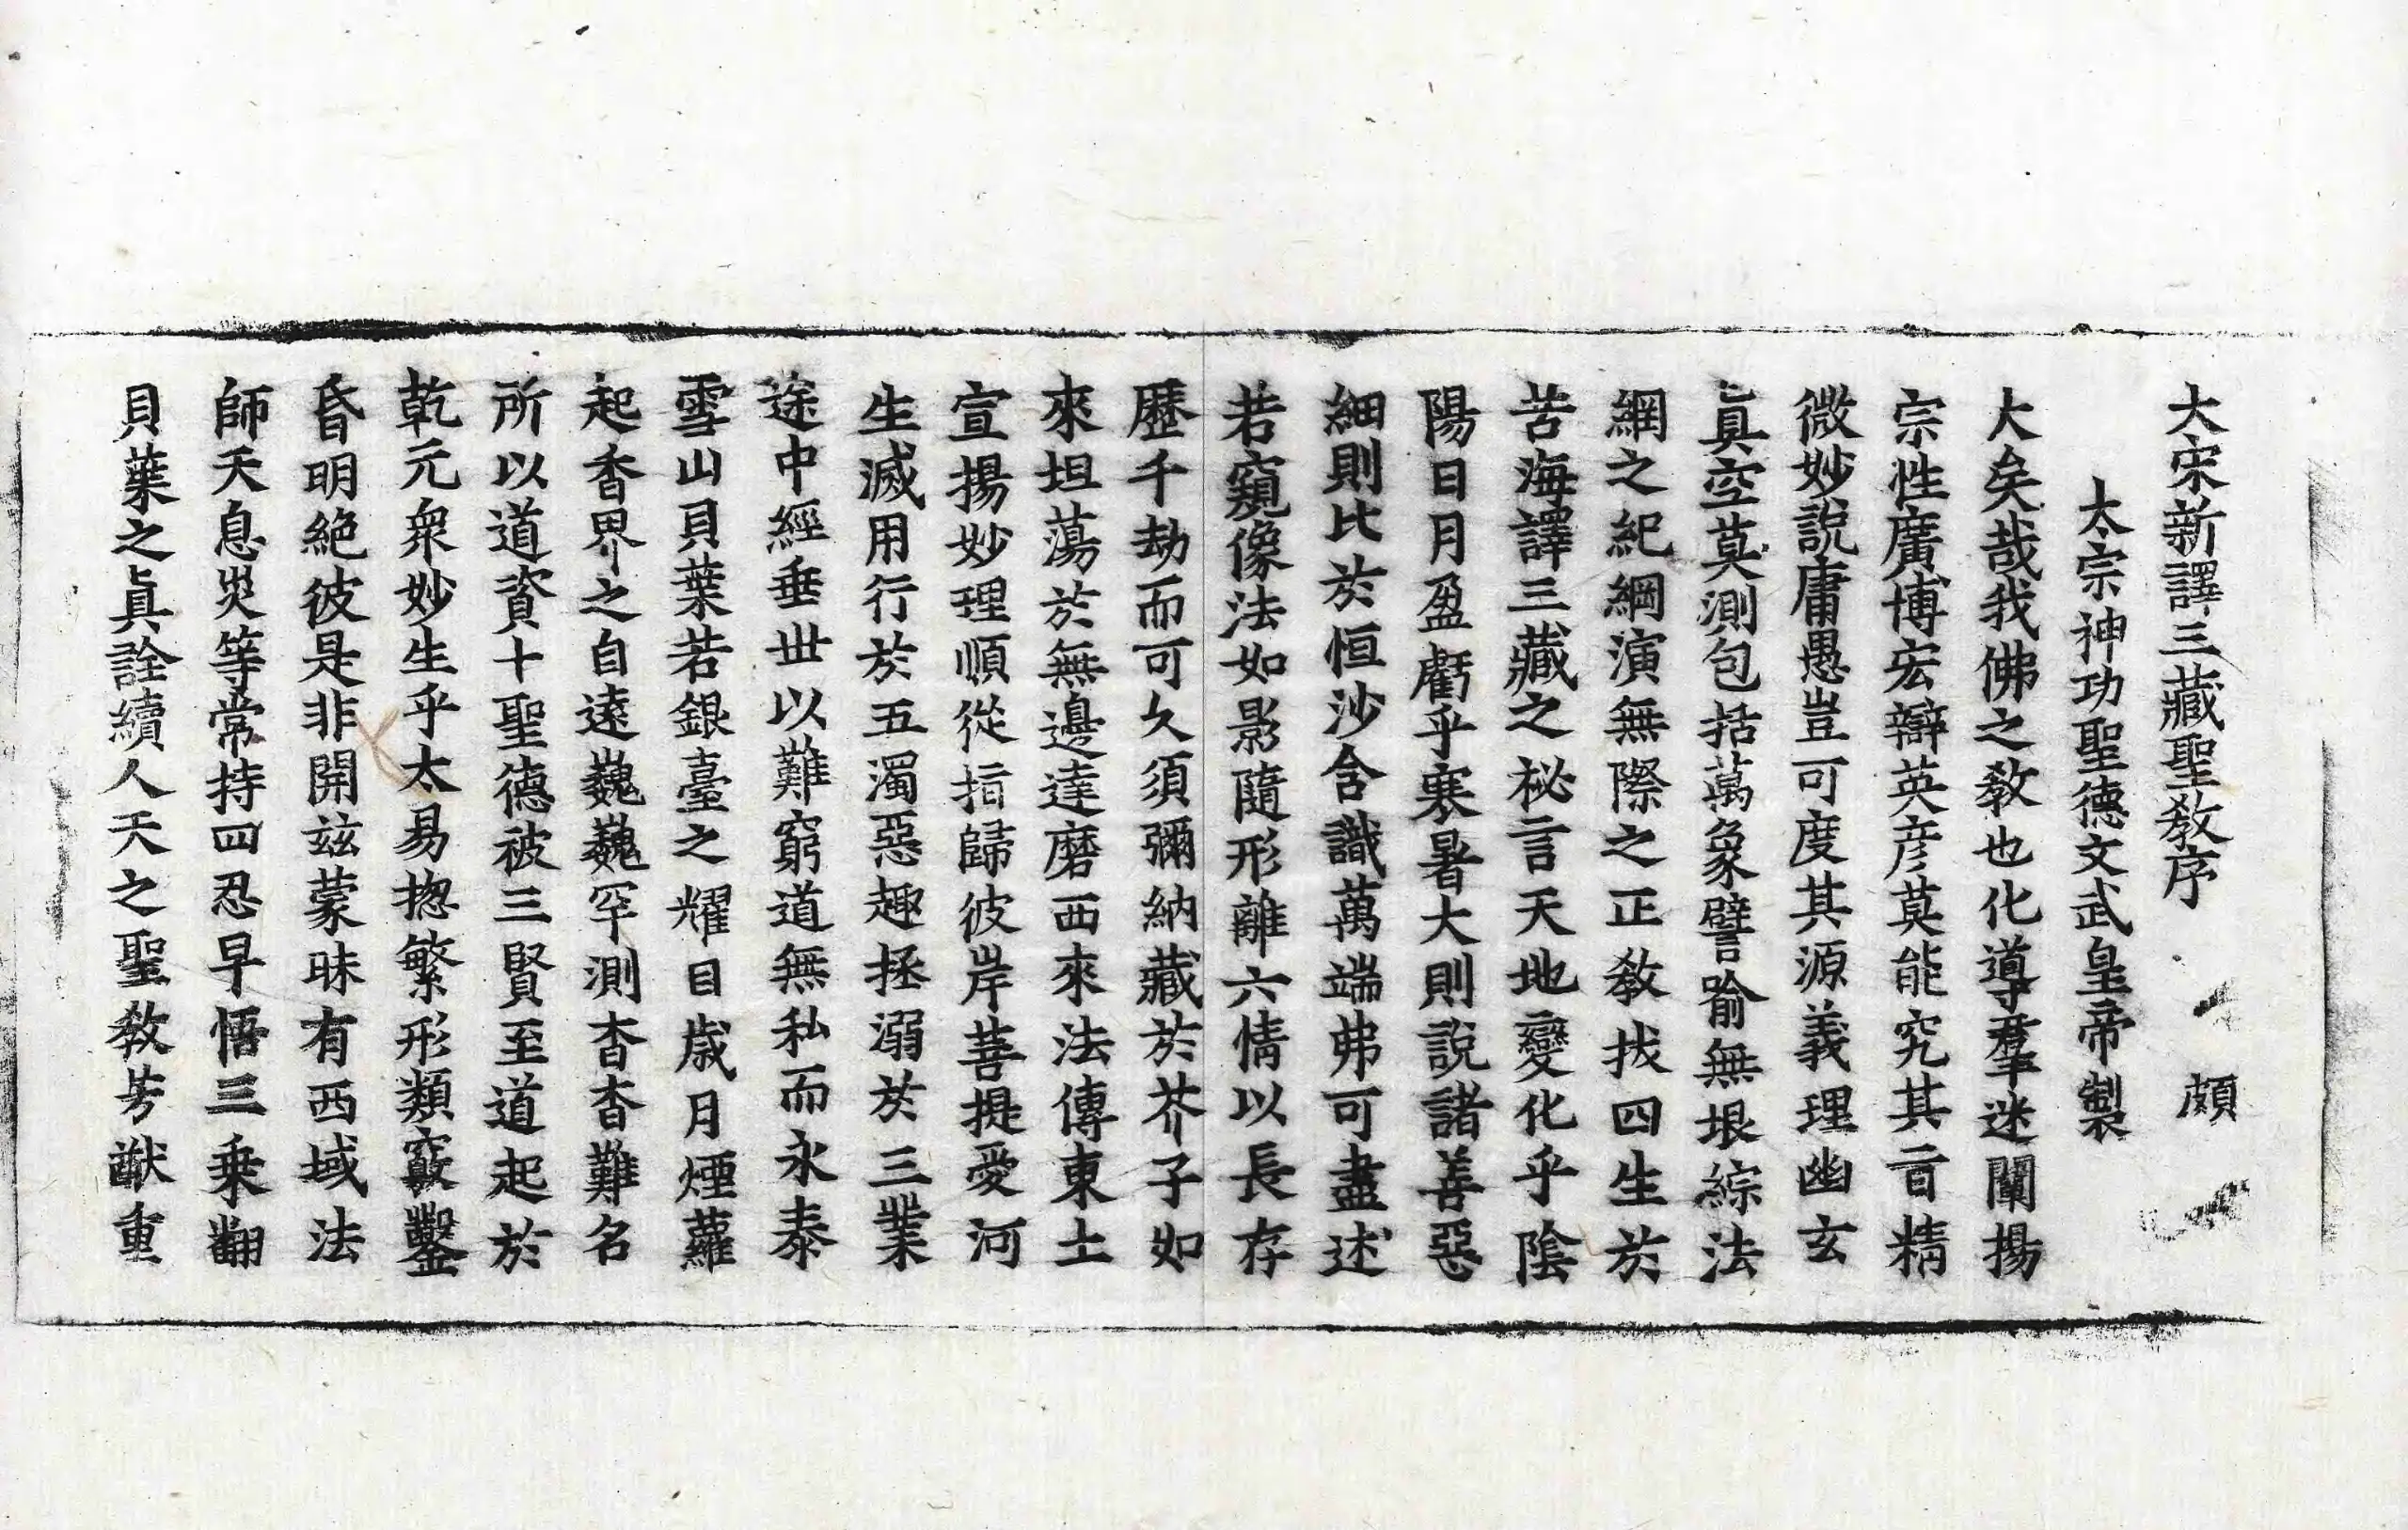 大宋新譯三藏聖教序　頗
太宗神功聖德文武皇帝製
大矣哉我佛之教也化導羣迷闡揚
宗性廣博宏辯英彦莫能究其旨精
微妙說庸愚豈可度其源義理幽玄
眞空莫測包括萬象譬喻無垠綜法
網之紀綱演無際之正教拔四生於
苦海譯三藏之秘言天地變化乎陰
陽日月盈虧乎寒暑大則說諸善惡
細則比於恒沙含識萬端弗可盡述
若窺像法如影隨形離六情以長存
歷千劫而可久須彌納藏於芥子如
來坦蕩於無邊達磨西來法傳東土
宣揚妙理順從指歸彼岸菩提愛河
生滅用行於五濁惡趣拯溺於三業
途中經垂丗以難窮道無私而永泰
雪山貝葉若銀臺之耀目歲月煙蘿
起香界之自遠巍巍罕測杳杳難名
所以道資十聖德被三賢至道起於
乾元衆妙生乎太易揔繁形類竅鑿
昏明絶彼是非開茲蒙昧有西域法
師天息災等常持四忍早悟三乗翻
貝葉之眞詮續人天之聖教芳猷重